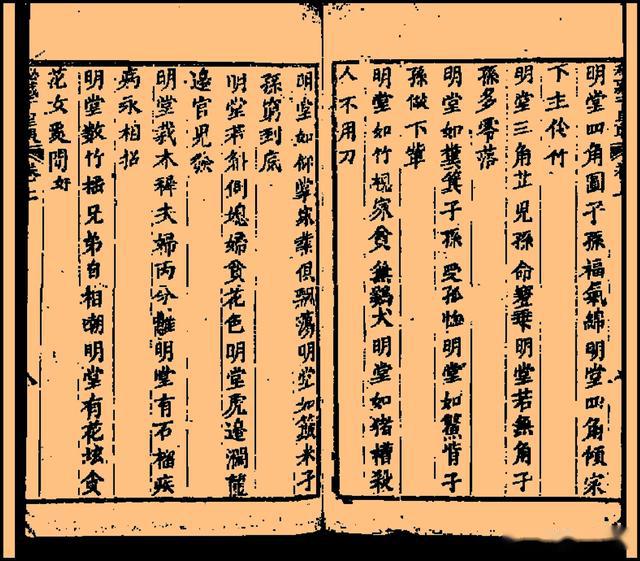 明堂四角圓子孫福氣綿明堂四角傾家
下主伶竹
明堂三角芷児孫命乖明堂若無角子
孫多零落
明堂如糞箕子孫受孤恓明堂如鱉背子
孫做下軰
明堂如竹梘家貧無鷄犬明堂如猪槽殺
人不用刀
明堂如仰掌家業俱飄蕩明堂如簸米子
孫窮到底
明堂若斜側媳婦貪花色明堂虎邉濶
邉官児發
明堂栽木稗夫婦丙分離明堂有石榴疾
病永相招
明堂数竹插兄弟自相嘲明堂有花坟貪
花女莫問好